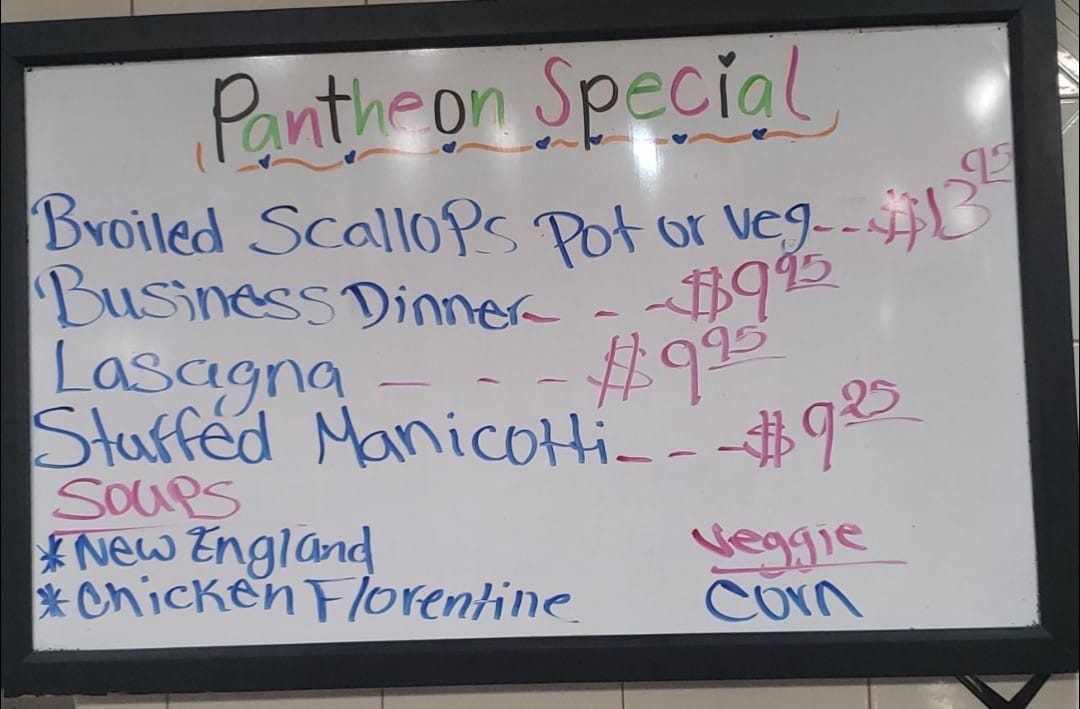 Pantheon Special
Broiled Scallops Pot or veg---$13 95
Business Dinner- - -$9 95
Lasagna - - - -$9 95
Stuffed Manicotti- - -$9 25
Soups
*New England
*Chicken Florentine
Veggie
Corn